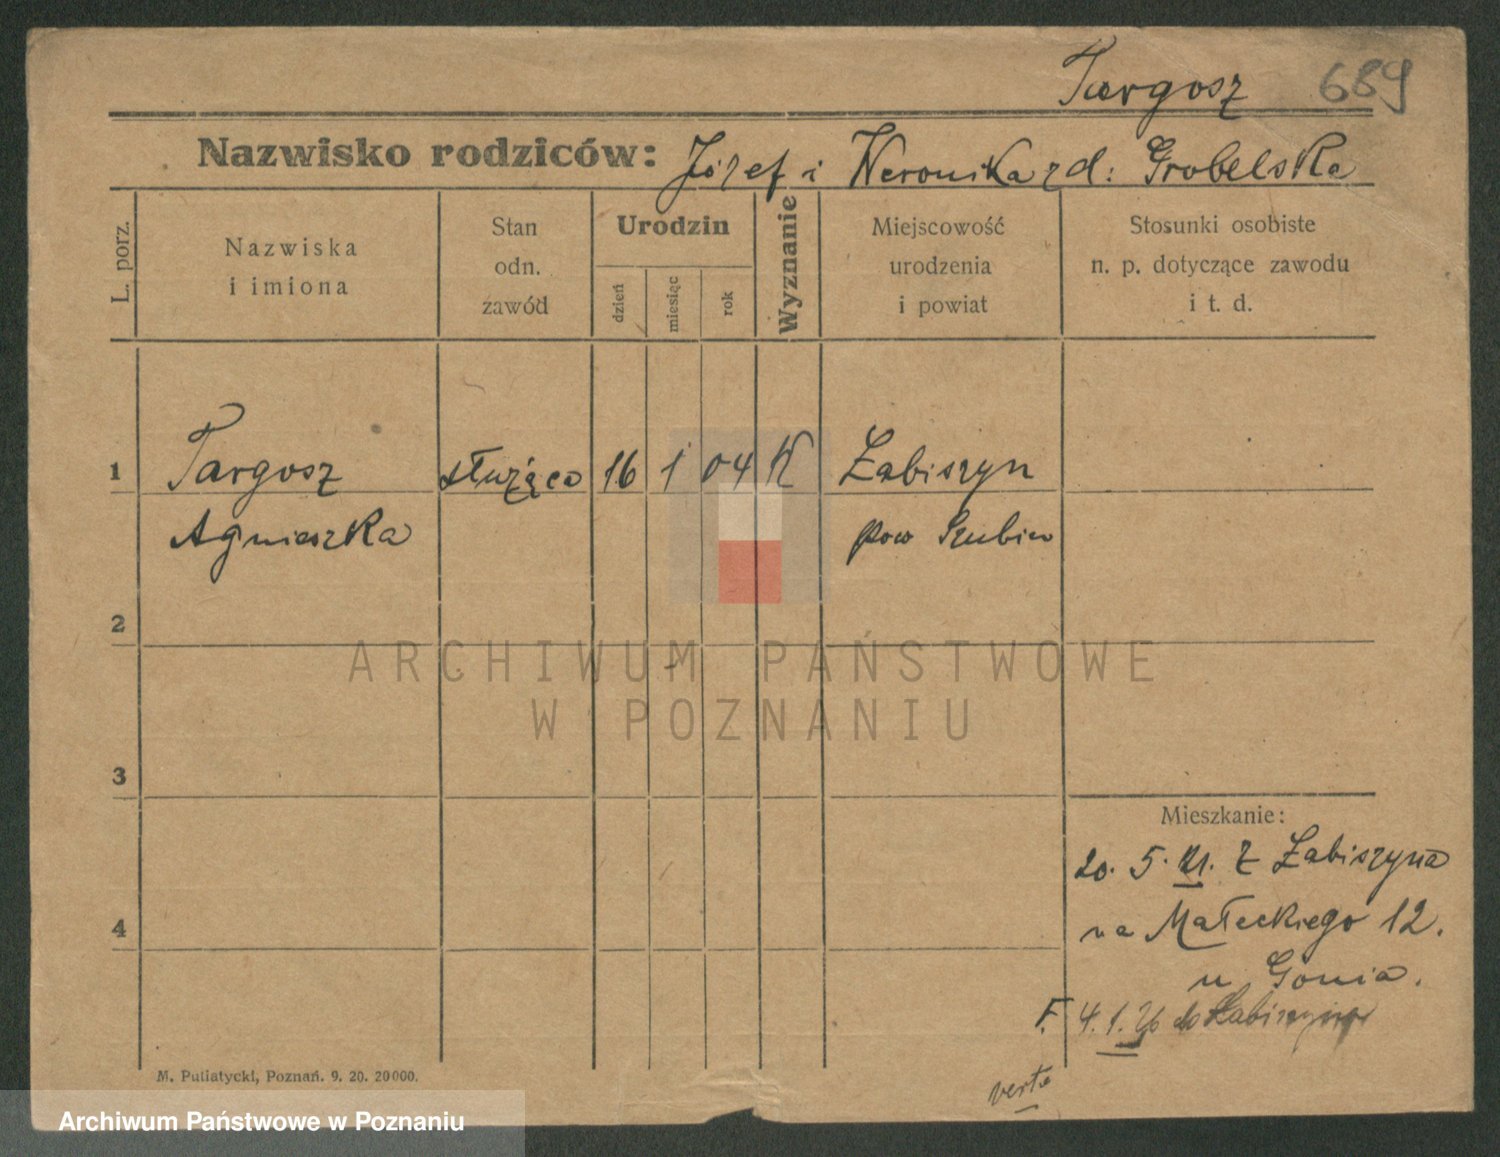 Targosz 689
Nazwisko rodziców: Józef i Weronika zd: Grobelska
L. porz.
Nazwiska
i imiona
Stan
odn.
zawód
Urodzin
dzień
miesiąc
rok
Wyznanie
Miejscowość
urodzenia
i powiat
Stosunki osobiste
n. p. dotyczące zawodu
i t. d.
1 Targosz służąca 16 1 04 K Łabiszyn
Agnieszka pow Szubin
2
ARCHIWUM PAŃSTWOWE
W POZNANIU
3
Mieszkanie:
20. 5. 21. z Łabiszyna
4 na Małeckiego 12.
u Gonia.
F. 4. 1. 26 do Łabiszyna
M. Putiatycki, Poznań. 9. 20. 20000.
verte
Archiwum Państwowe w Poznaniu